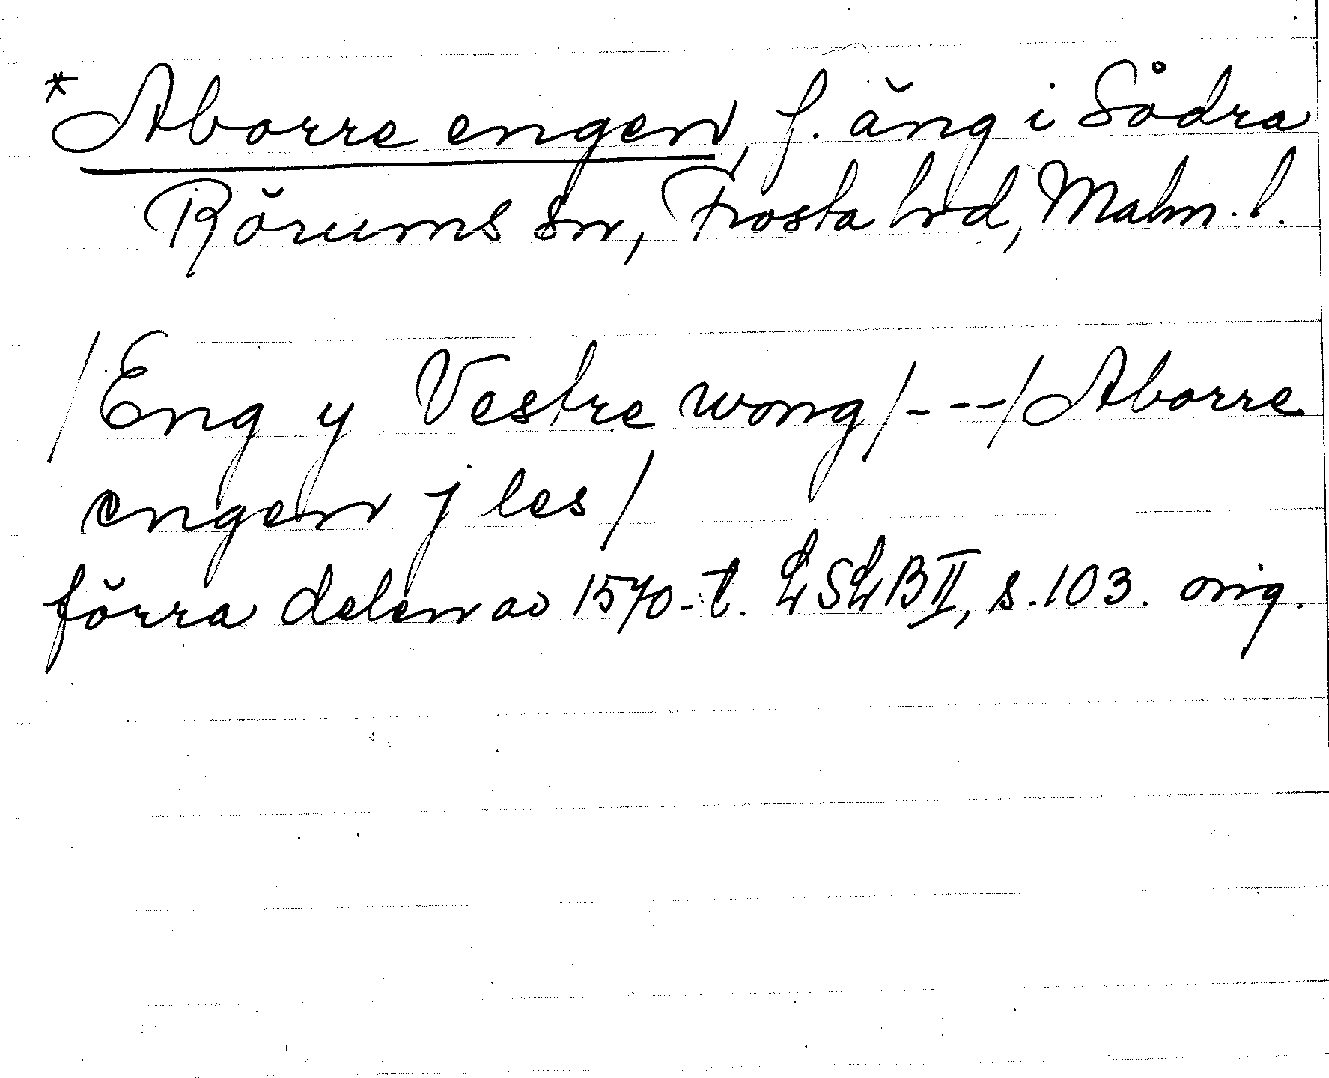 *Aborre engen, f. äng i Södra
Rörums sn, Frosta hrd, Malm. l.
/Eng y Vestre wong/---/Aborre
engen j les/
förra delen av 1570-t. LSLB II, s. 103. orig.